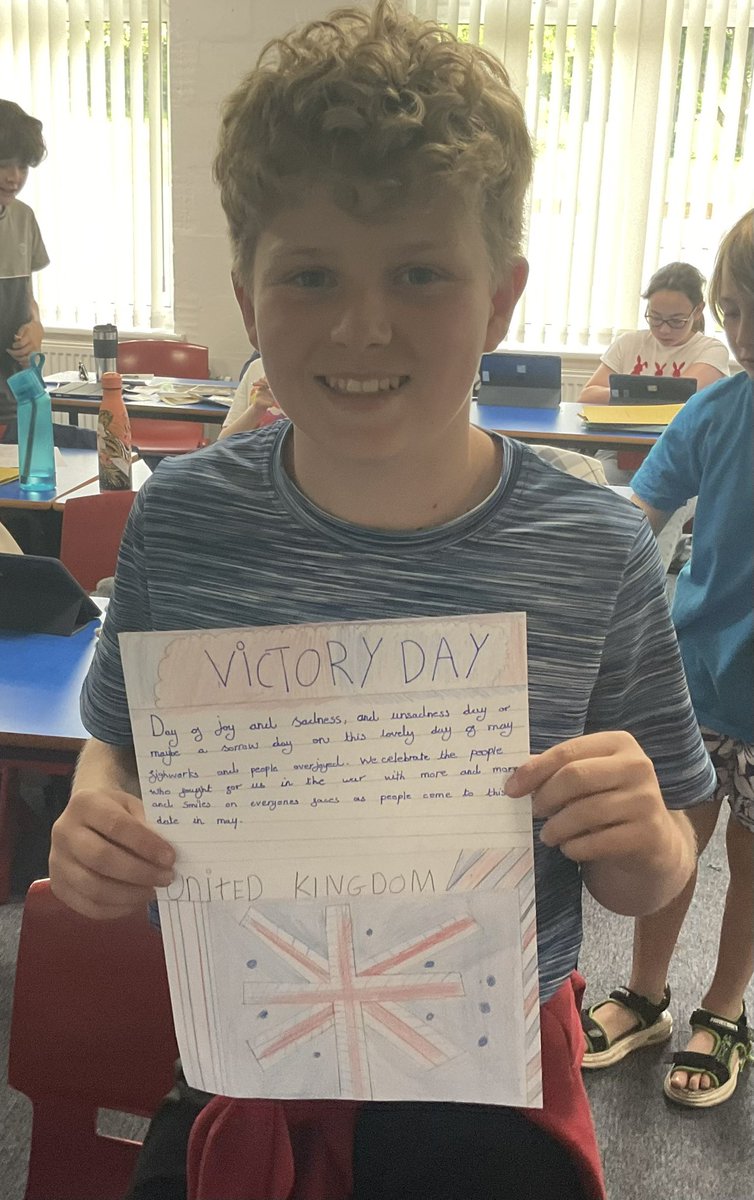 VICTORY DAY
Day of joy and sadness, and unsadness day or
maybe a sorrow day on this lovely day of may
fighworks and people overjoyed. We celebrate the people
who fought for us in the war with more and more
and smiles on everyones faces as people come to this
date in may.
UNITED KINGDOM